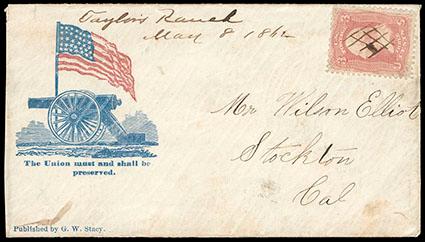 Taylor's Ranch
May 8 1862
Mr Wilson Elliot
Stockton
Cal
The Union must and shall be
preserved.
Published by G. W. Stacy.